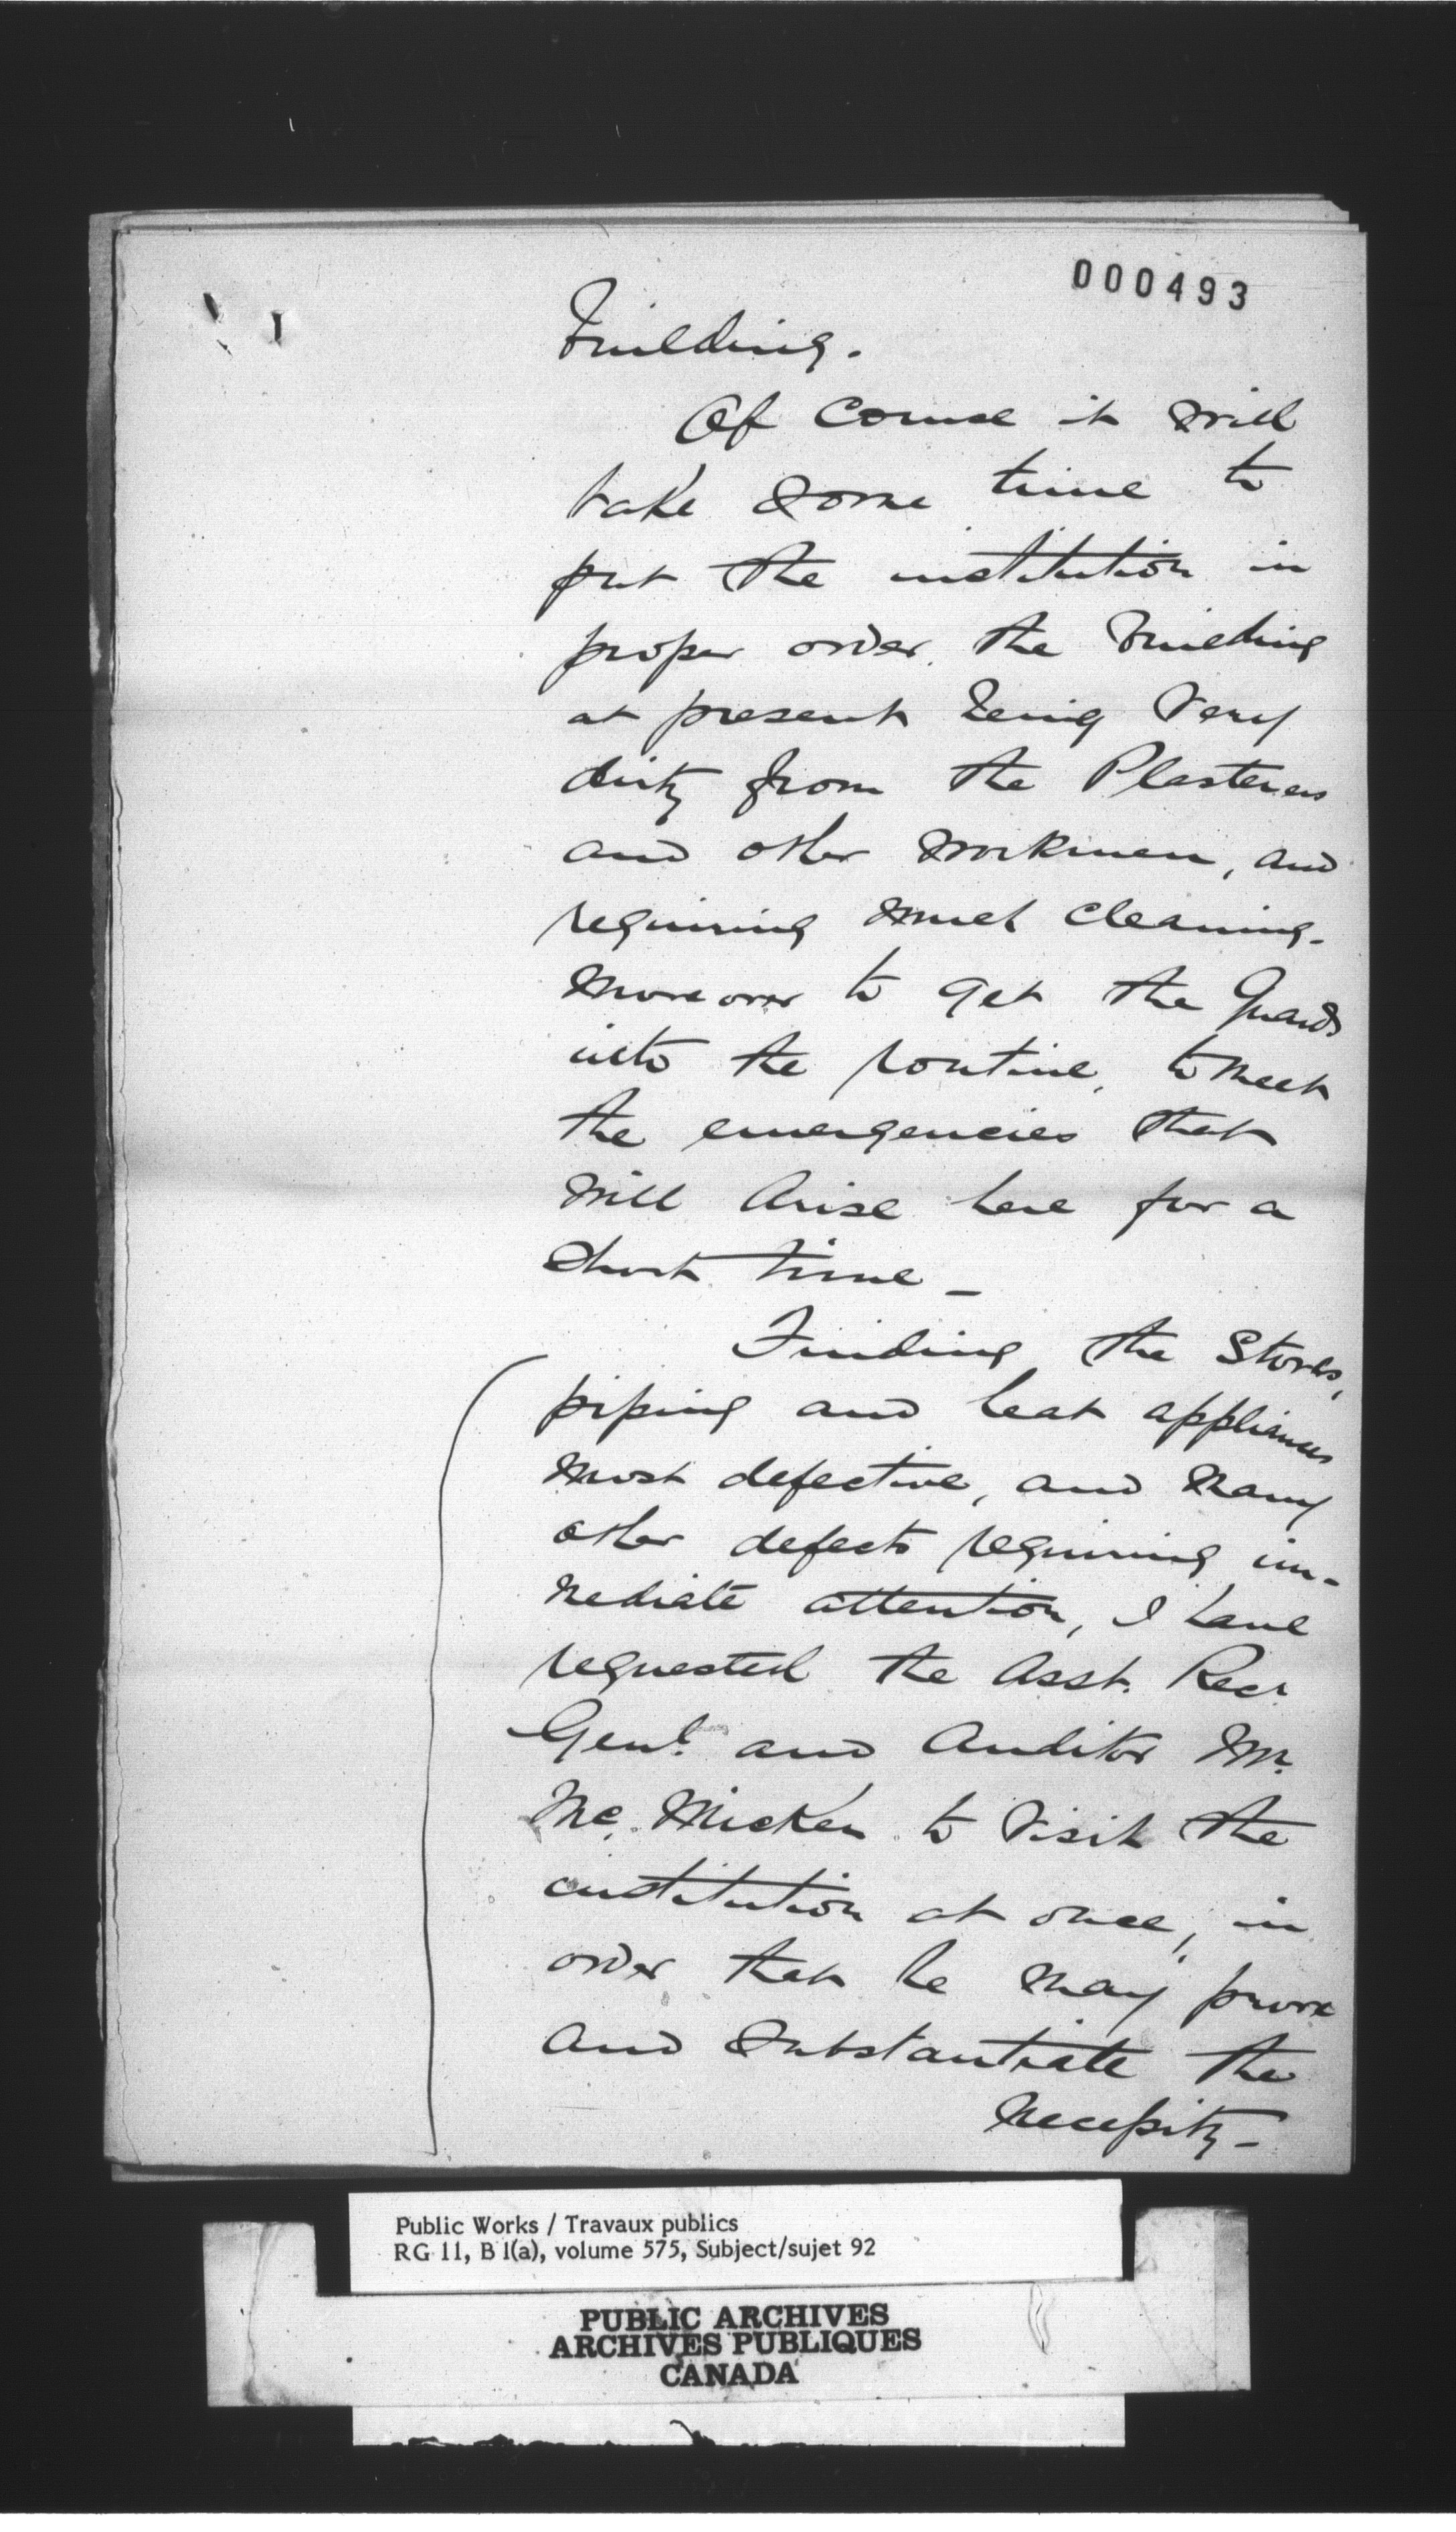 000493
building.
Of course it will
take some time to
put the institution in
proper order, the building
at present being very
dirty from the Plasterers
and other workmen, and
requiring much cleaning.
Moreover to get the Guards
into the routine, to meet
the emergencies that
will arise here for a
short time _
Finding the Stoves,
piping and heat appliances
most defective, and many
other defects requiring im-
mediate attention, I have
requested the Asst. Recr
Genl. and Auditor Mr.
Mc. Micken to visit the
institution at once, in
order that he may prove
and substantiate the
necessity _
Public Works / Travaux publics
RG 11, B 1(a), volume 575, Subject/sujet 92
PUBLIC ARCHIVES
ARCHIVES PUBLIQUES
CANADA